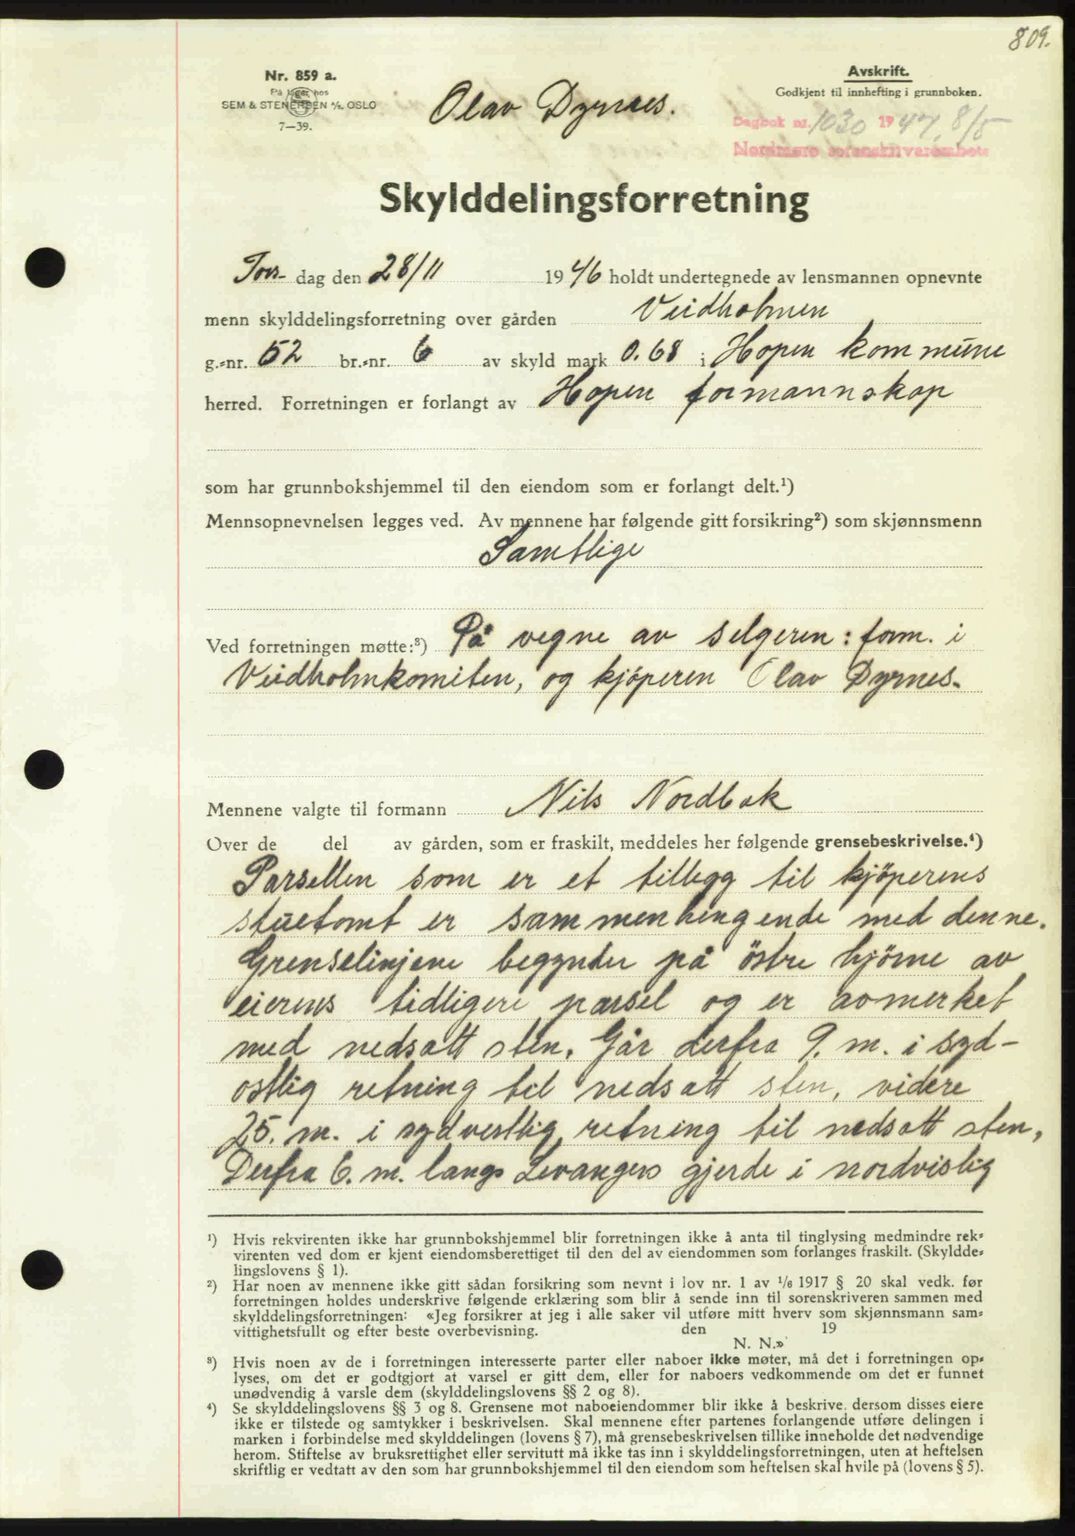 809.
Nr. 859 a.
På lager hos
SEM & STENERSEN A/S. OSLO
7—39.
Olav Dyrnes.
Avskrift.
Godkjent til innhefting i grunnboken.
Dagbok nr. 1030 1947, 8/5
Nordmøre sorenskriverembete
Skylddelingsforretning
Tors- dag den 28/11 1946 holdt undertegnede av lensmannen opnevnte
menn skylddelingsforretning over gården Veidholmen
g.=nr. 52 br.=nr. 6 av skyld mark 0.68 i Hopen kommune
herred. Forretningen er forlangt av Hopen formannskap
som har grunnbokshjemmel til den eiendom som er forlangt delt.¹)
Mennsopnevnelsen legges ved. Av mennene har følgende gitt forsikring²) som skjønnsmenn
Samtlige
Ved forretningen møtte:³) På vegne av selgeren: form. i
Veidholmkomiteen, og kjöperen Olav Dyrnes.
Mennene valgte til formann Nils Nordbak
Over de del av gården, som er fraskilt, meddeles her følgende grensebeskrivelse.⁴)
Parsellen som er et tillegg til kjöperens
stuetomt er sammenhengende med denne.
Grenselinjene begynder på östre hjörne av
eierens tidligere parsel og er avmerket
med nedsatt sten. Går derfra 9. m. i syd-
ostlig retning til nedsatt sten, videre
25. m. i sydvestlig retning til nedsatt sten,
Derfra 6. m. langs Levangers gjerde i nordvestlig
¹) Hvis rekvirenten ikke har grunnbokshjemmel blir forretningen ikke å anta til tinglysing medmindre rek=
virenten ved dom er kjent eiendomsberettiget til den del av eiendommen som forlanges fraskilt. (Skyldde=
lingslovens § 1).
²) Har noen av mennene ikke gitt sådan forsikring som nevnt i lov nr. 1 av 1/6 1917 § 20 skal vedk. før
forretningen holdes underskrive følgende erklæring som blir å sende inn til sorenskriveren sammen med
skylddelingsforretningen: «Jeg forsikrer at jeg i alle saker vil utføre mitt hverv som skjønnsmann sam=
vittighetsfullt og efter beste overbevisning. den 19
N. N.»
³) Hvis noen av de i forretningen interesserte parter eller naboer ikke møter, må det i forretningen op=
lyses, om det er godtgjort at varsel er gitt dem, eller for naboers vedkommende om det er funnet
unødvendig å varsle dem (skylddelingslovens §§ 2 og 8).
⁴) Se skylddelingslovens §§ 3 og 8. Grensene mot naboeiendommer blir ikke å beskrive, dersom disses eiere
ikke er tilstede og samtykker i beskrivelsen. Skal mennene efter partenes forlangende utføre delingen i
marken i forbindelse med skylddelingen (lovens § 7), må grensebeskrivelsen tillike inneholde det nødvendige
herom. Stiftelse av bruksrettighet eller servitutt må ikke tas inn i skylddelingsforretningen, uten at heftelsen
skriftlig er vedtatt av den som har grunnbokshjemmel til den eiendom som heftelsen skal hvile på (lovens § 5).